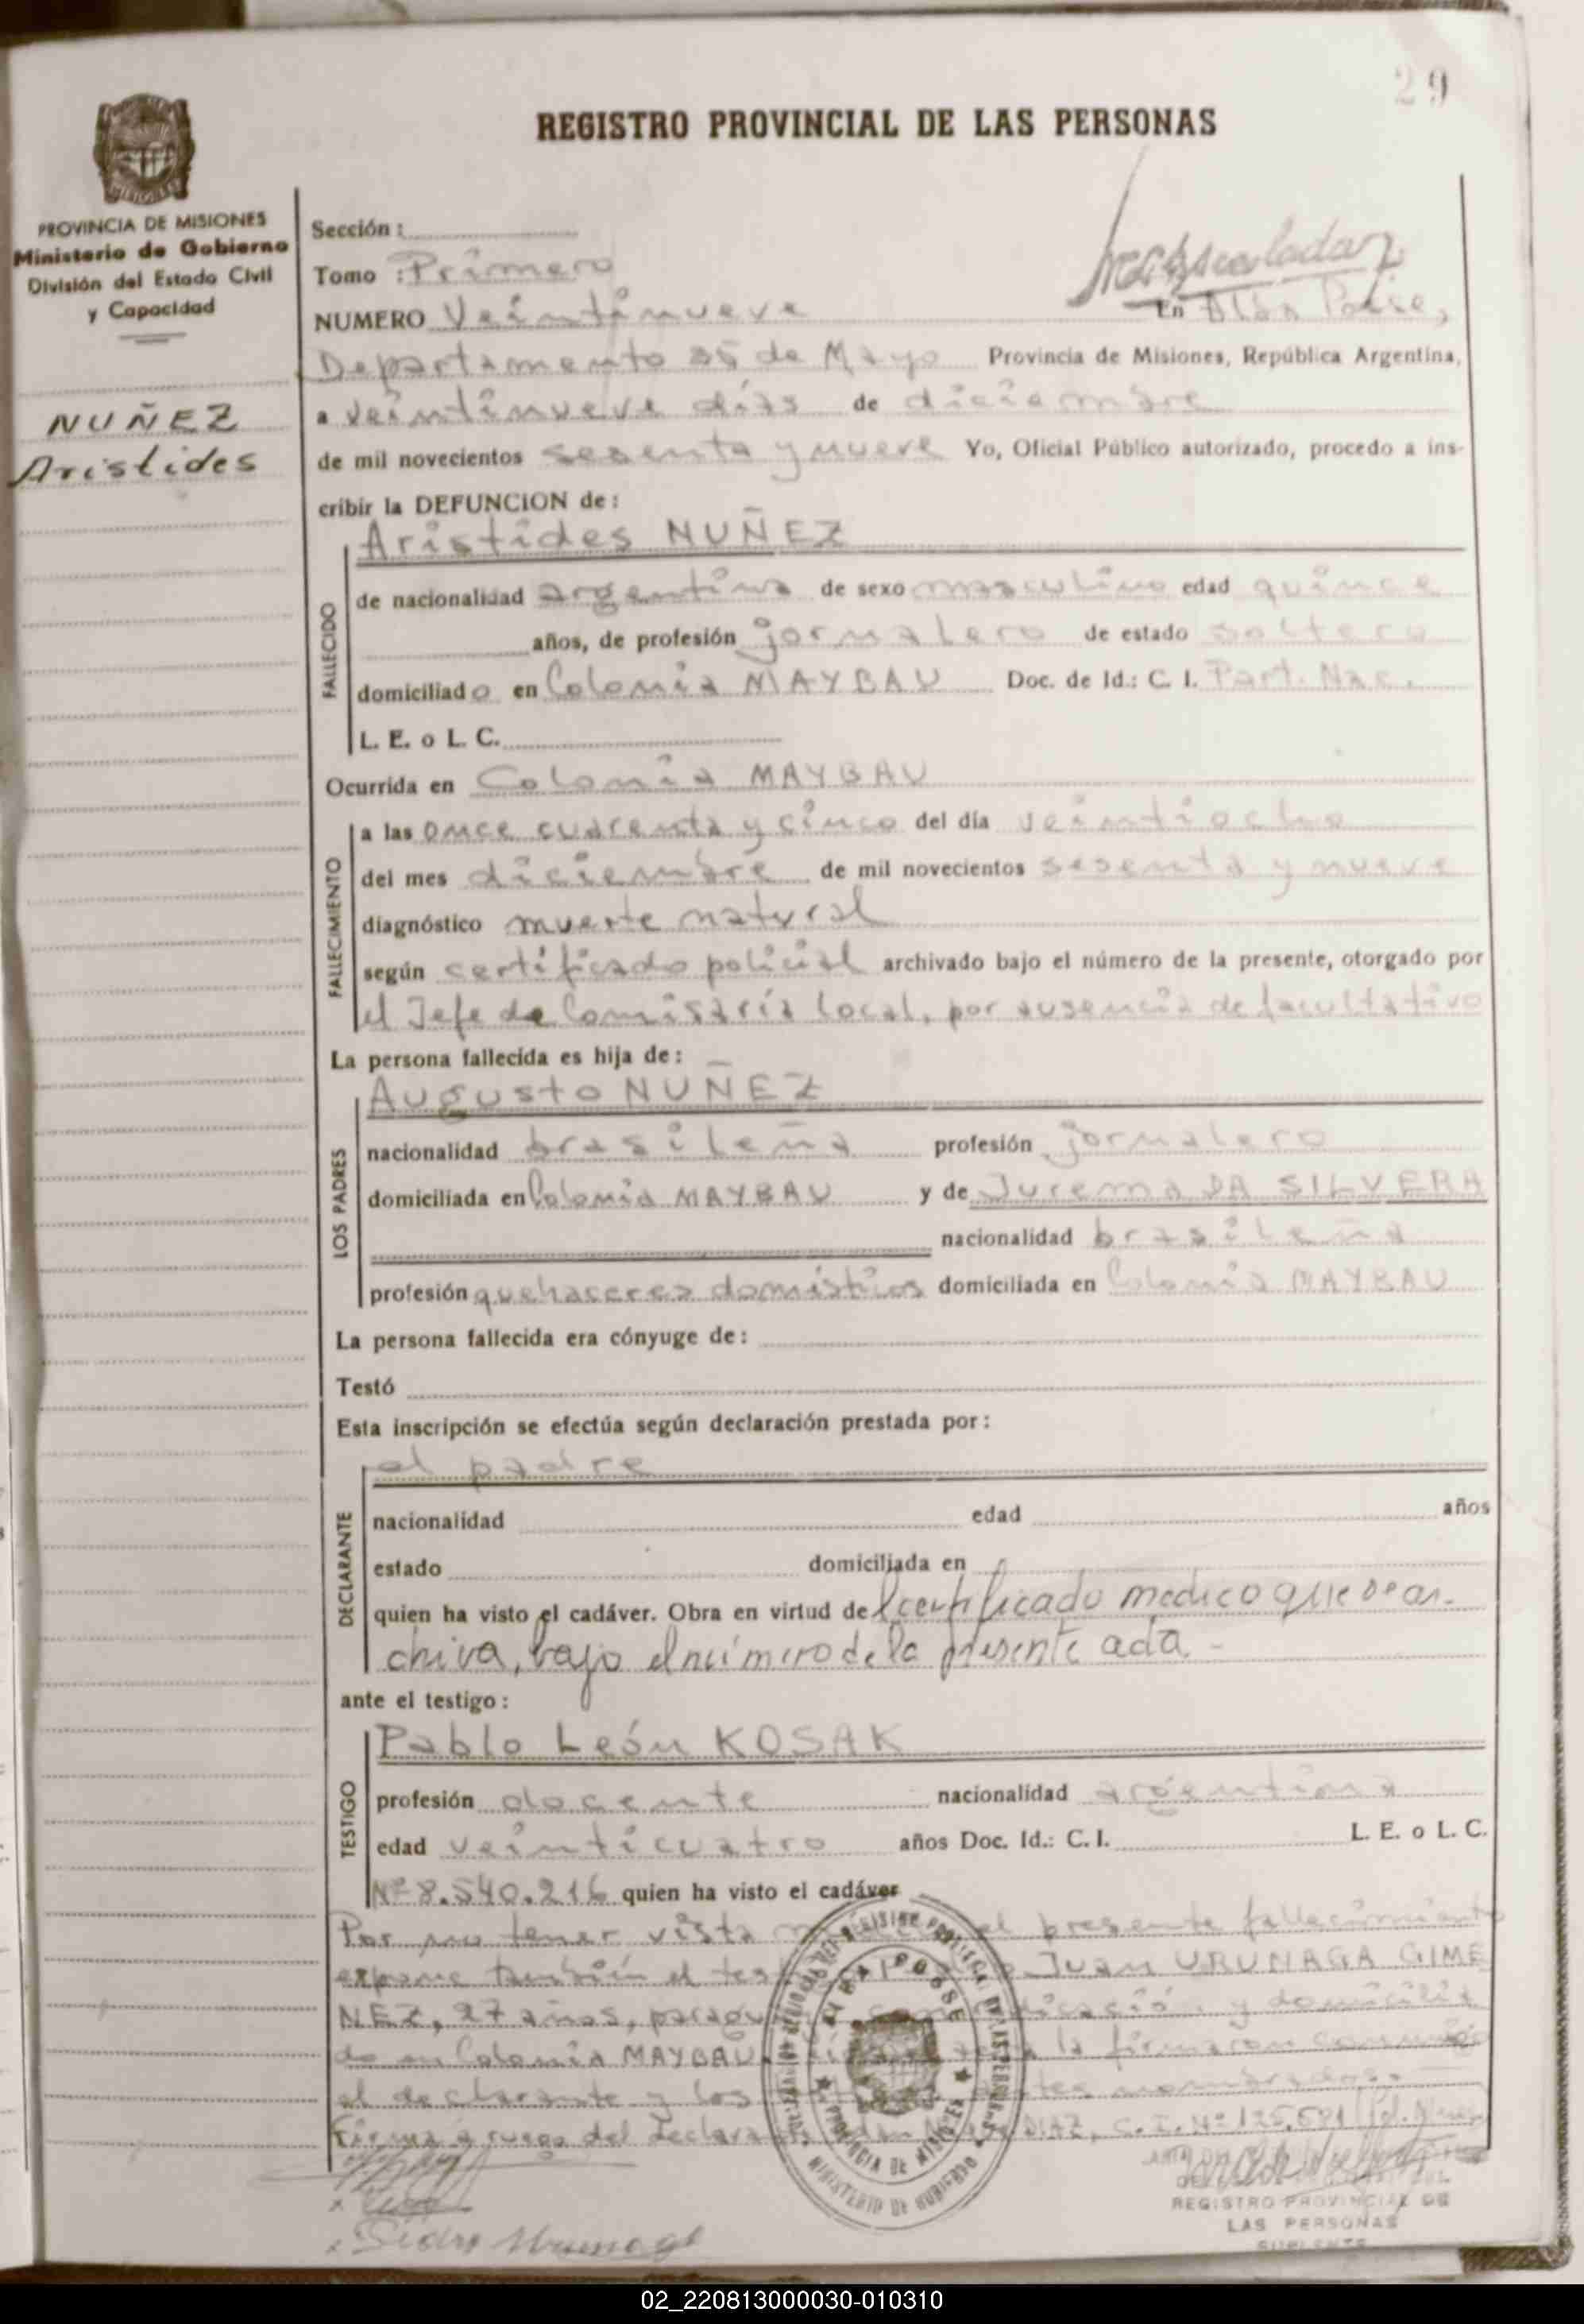 29
REGISTRO PROVINCIAL DE LAS PERSONAS
PROVINCIA DE MISIONES
Ministerio de Gobierno
División del Estado Civil
y Capacidad
NUÑEZ
Aristides
Sección :
Tomo : Primero
NUMERO Veintinueve En Alba Posse,
Departamento 25 de Mayo Provincia de Misiones, República Argentina,
a veintinueve días de diciembre
de mil novecientos sesenta y nueve Yo, Oficial Público autorizado, procedo a ins-
cribir la DEFUNCION de :
Aristides NUÑEZ
FALLECIDO
de nacionalidad argentina de sexo masculino edad quince
años, de profesión jornalero de estado soltero
domiciliado en Colonia MAYBAU Doc. de Id.: C. I. Part. Nac.
L. E. o L. C.
Ocurrida en Colonia MAYBAU
FALLECIMIENTO
a las once cuarenta y cinco del día veintiocho
del mes diciembre de mil novecientos sesenta y nueve
diagnóstico muerte natural
según certificado policial archivado bajo el número de la presente, otorgado por
el Jefe de Comisaría local, por ausencia de facultativo
La persona fallecida es hija de :
Augusto NUÑEZ
LOS PADRES
nacionalidad brasileña profesión jornalero
domiciliada en Colonia MAYBAU y de Jurema DA SILVERA
nacionalidad brasileña
profesión quehaceres domésticos domiciliada en Colonia MAYBAU
La persona fallecida era cónyuge de :
Testó
Esta inscripción se efectúa según declaración prestada por :
el padre
DECLARANTE
nacionalidad edad años
estado domiciliada en
quien ha visto el cadáver. Obra en virtud del certificado medico que se ar-
chiva, bajo el número de la presente acta -
ante el testigo :
Pablo León KOSAK
TESTIGO
profesión docente nacionalidad argentina
edad veinticuatro años Doc. Id.: C. I. L. E. o L. C.
Nº 8.540.216 quien ha visto el cadáver
Por no tener vista el presente fallecimiento
expone también el Juan URUNAGA GIME
NEZ, 27 años, y domicilia
do en Colonia MAYBAU. la firmaron conmigo
el declarante y los nombrados.
Firma a ruego del declarante DIAZ, C. I. Nº 125.591
ALBA POSSE
PROVINCIA DE MISIONES
MINISTERIO DE GOBIERNO
REGISTRO PROVINCIAL DE
LAS PERSONAS
SUPLENTE
02_220813000030-010310